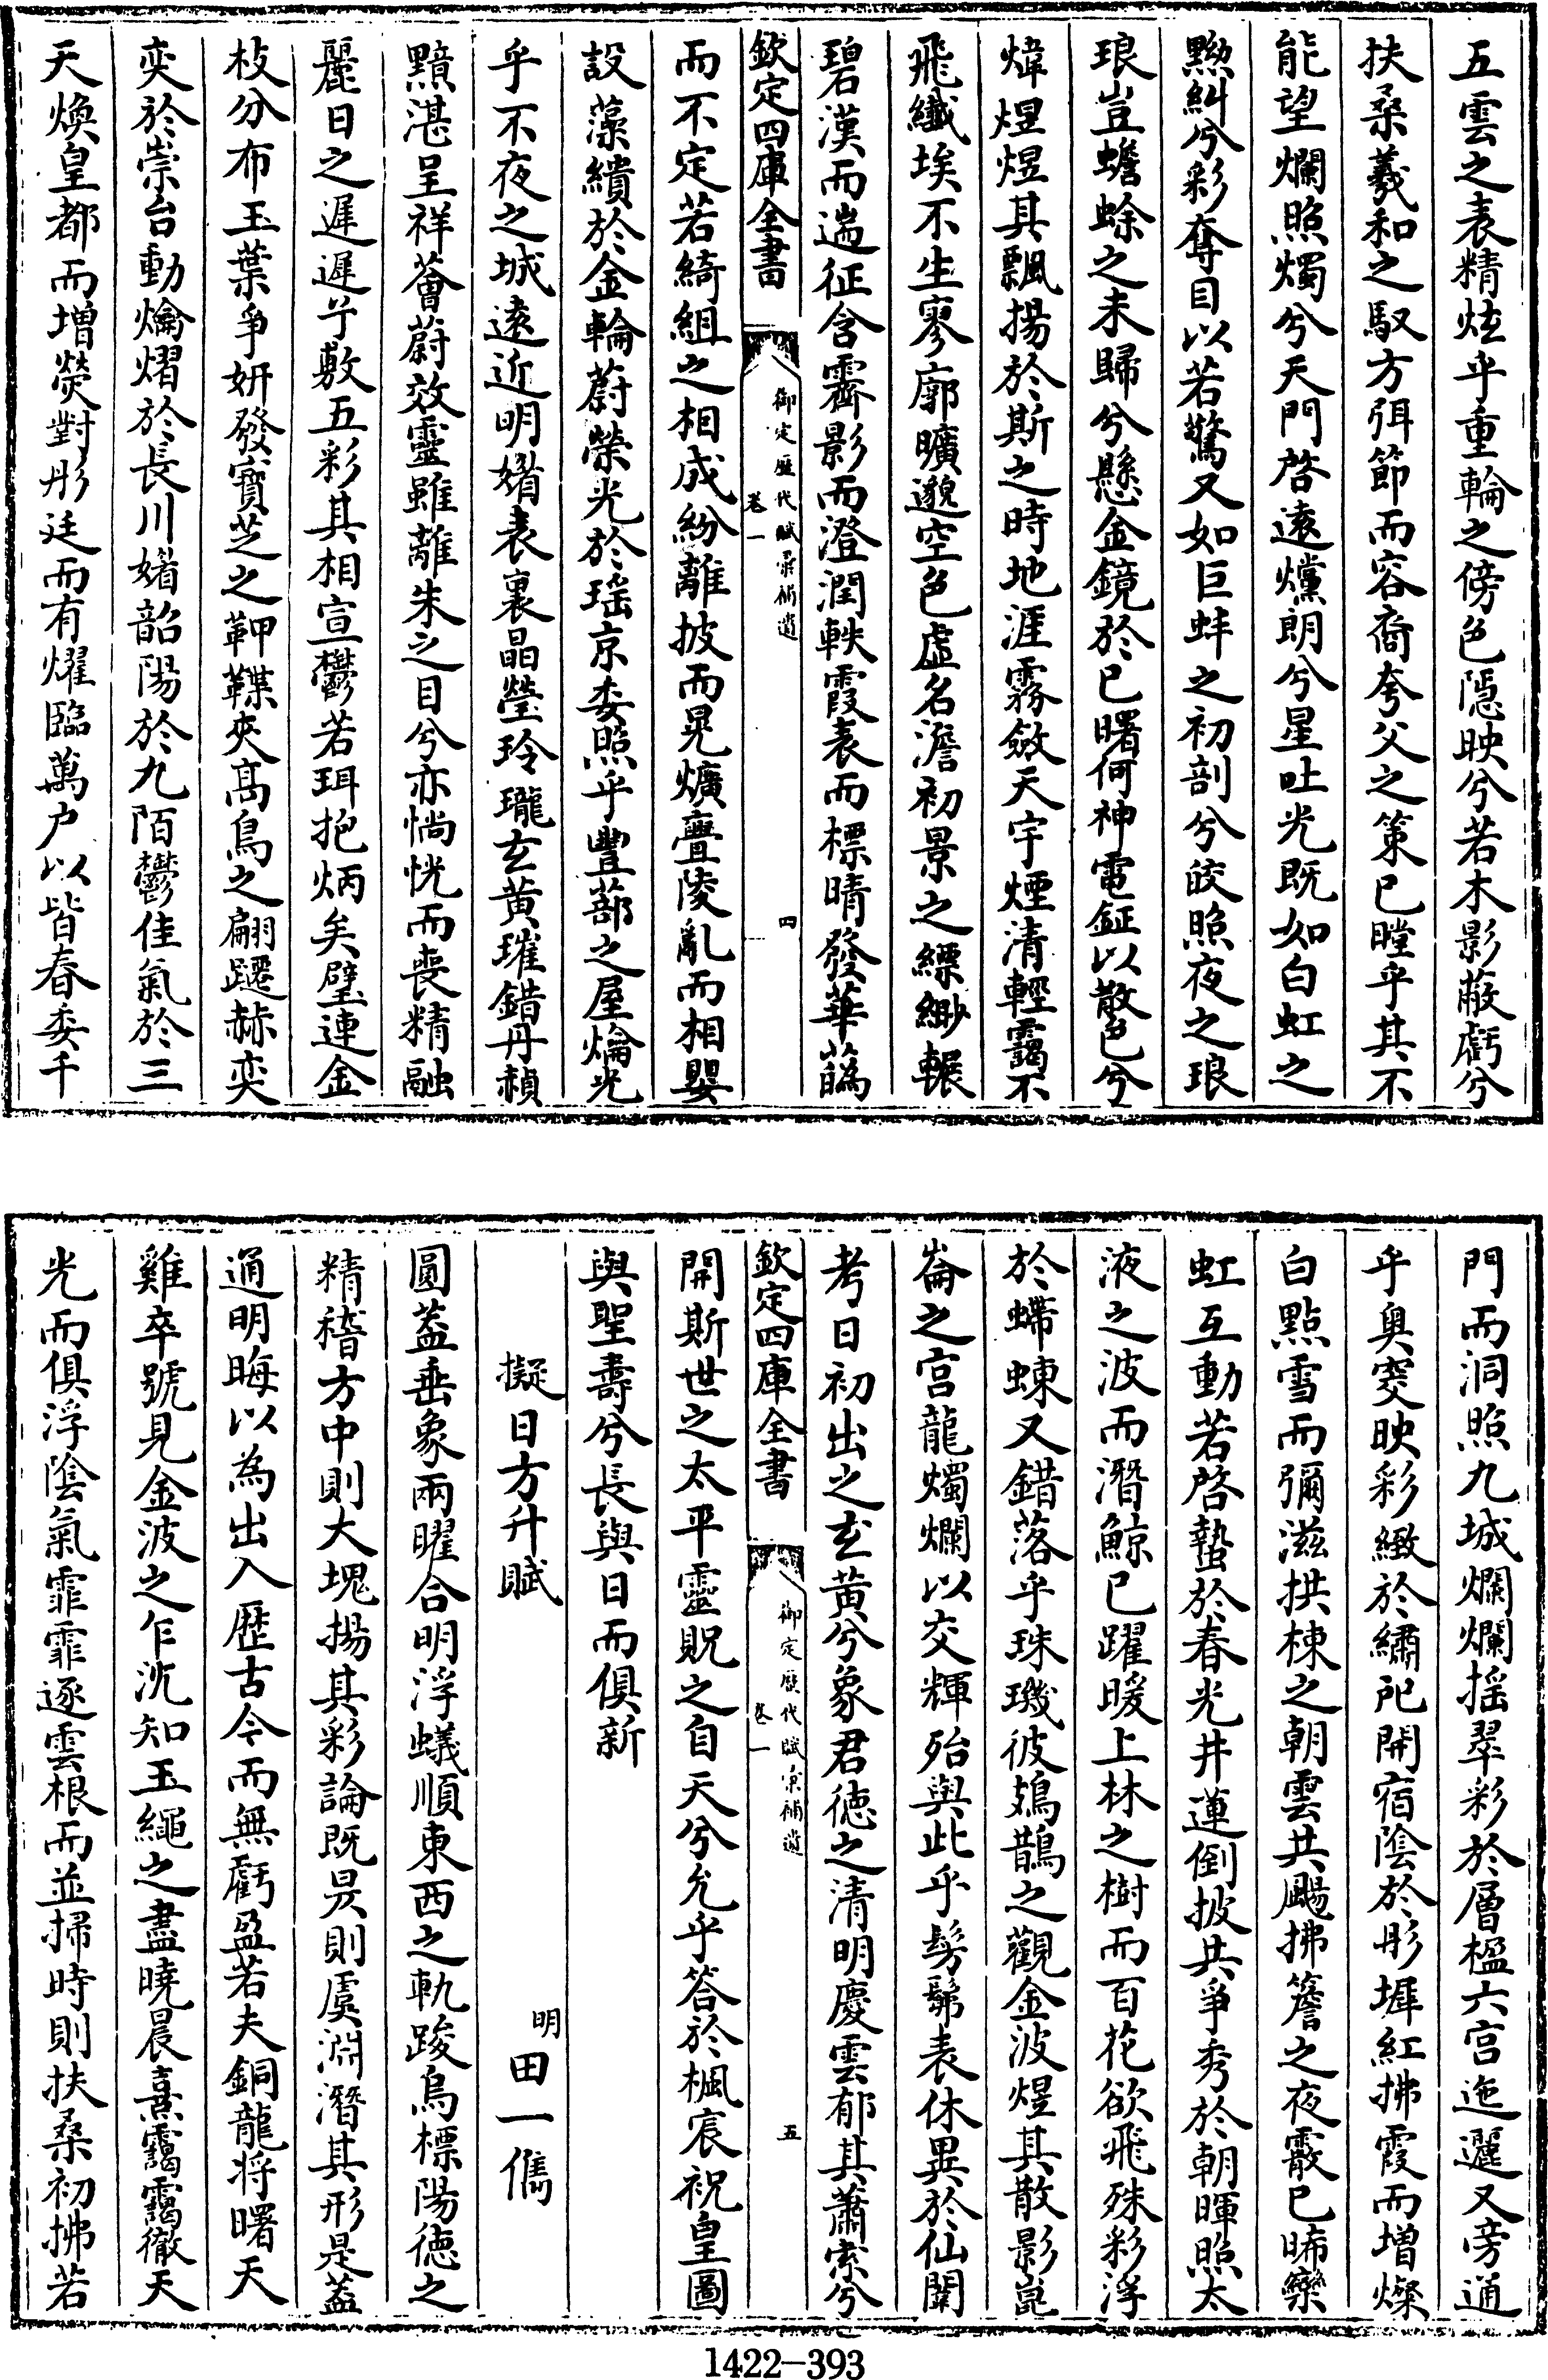 五雲之表精炫乎重輪之傍色隱映兮若木影蔽虧兮
扶桑羲和之馭方弭節而容裔夸父之策已瞠乎其不
能望爛照燭兮天門啓遠爣朗兮星吐光既如白虹之
黝糾兮彩奪目以若驚又如巨蚌之初剖兮皎照夜之琅
琅豈蟾蜍之未歸兮懸金鏡於已曙何神電鉦以散色兮
煒煜煜其飄揚於斯之時地涯霧斂天宇煙清輕靄不
飛纖埃不生寥廓曠邈空色虛名澹初景之縹緲輾
碧漢而遄征含霽影而澄潤軼霞表而標晴發華蘤
欽定四庫全書
御定歷代賦彙補遺
卷一
四
而不定若綺組之相成紛離披而晃爌亹陵亂而相嬰
設藻繢於金輪蔚榮光於瑶京委照乎豐蔀之屋爚光
乎不夜之城遠近明媋表裏晶瑩玲瓏玄黄璀錯丹赬
黯湛呈祥薈蔚效靈雖離朱之目兮亦惝恍而喪精融
麗日之遲遲兮敷五彩其相宣鬱若珥抱炳矣璧連金
枝分布玉葉爭妍發寶芝之鞞鞢夾高鳥之翩躚赫奕
奕於崇台動爚熠於長川媋韶陽於九陌鬱佳氣於三
天煥皇都而增熒對彤廷而有燿臨萬户以皆春委千
門而洞照九城爛爛摇翠彩於層楹六宫迤邐又旁通
乎奥突映彩緻於繡戺開宿陰於彤墀紅拂霞而增燦
白點雪而彌滋拱棟之朝雲共颺拂簷之夜霰已晞欒
虹互動若啓蟄於春光井蓮倒披共爭秀於朝暉照太
液之波而潛鯨已躍暖上林之樹而百花欲飛殊彩浮
於螮蝀又錯落乎珠璣彼鳷鵲之觀金波煜其散影崑
崙之宫龍燭爛以交輝殆與此乎髣髴表休異於仙闈
考日初出之玄黄兮象君徳之清明慶雲郁其蕭索兮
欽定四庫全書
御定歷代賦彙補遺
卷一
五
開斯世之太平靈貺之自天兮允乎答於楓宸祝皇圖
與聖壽兮長與日而俱新
擬日方升賦
明 田一儁
圓葢垂象兩曜合明浮蟻順東西之軌踆烏標陽徳之
精稽方中則大塊揚其彩論既昃則虞淵潛其形是葢
通明晦以為出入歴古今而無虧盈若夫銅龍将曙天
雞卒號見金波之乍沉知玉繩之盡曉晨熹靄靄徹天
光而俱浮陰氣霏霏逐雲根而並掃時則扶桑初拂若
1422-393